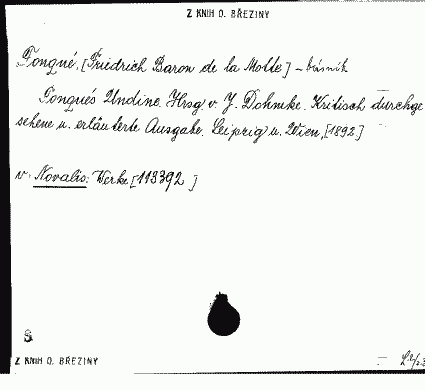 Z KNIH O. BŘEZINY
Fouqué, [Friedrich Baron de la Motte] – básník
Fouqués Undine. Hrsg v. J. Dohmke. Kritisch durchge
sehene u. erläuterte Ausgabe. Leipzig u. Wien, [1892.]
v: Novalis: Werke [113392]
S
Z KNIH O. BŘEZINY